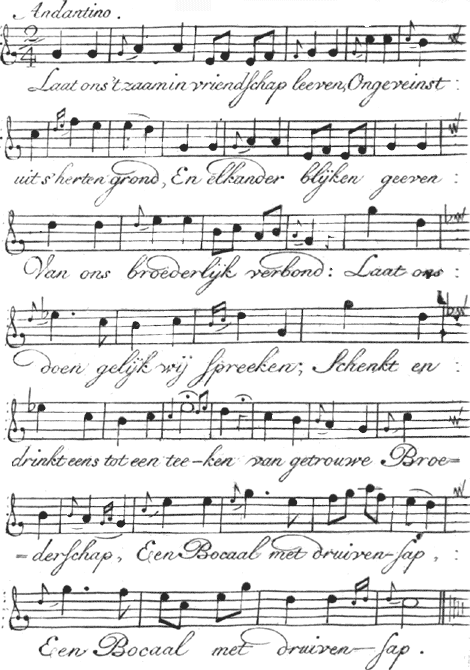 Andantino.
Laat ons 't zaam in vriendschap leeven, Ongeveinst :
uit s'herten grond, En elkander blijken geeven :
Van ons broederlijk verbond: Laat ons :
doen gelijk wij spreeken; Schenkt en :
drinkt eens tot een tee-ken van getrouwe Broe=
-derschap, Een Bocaal met druiven-sap, :
Een Bocaal met druiven-sap.